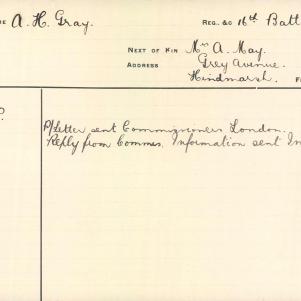 A. H. Gray. REG. &C 16th Batt
NEXT OF KIN Mrs A. May.
ADDRESS Grey Avenue.
Hindmarsh.
P/Letter sent Commissioners London.
Reply from Commrs. Information sent In